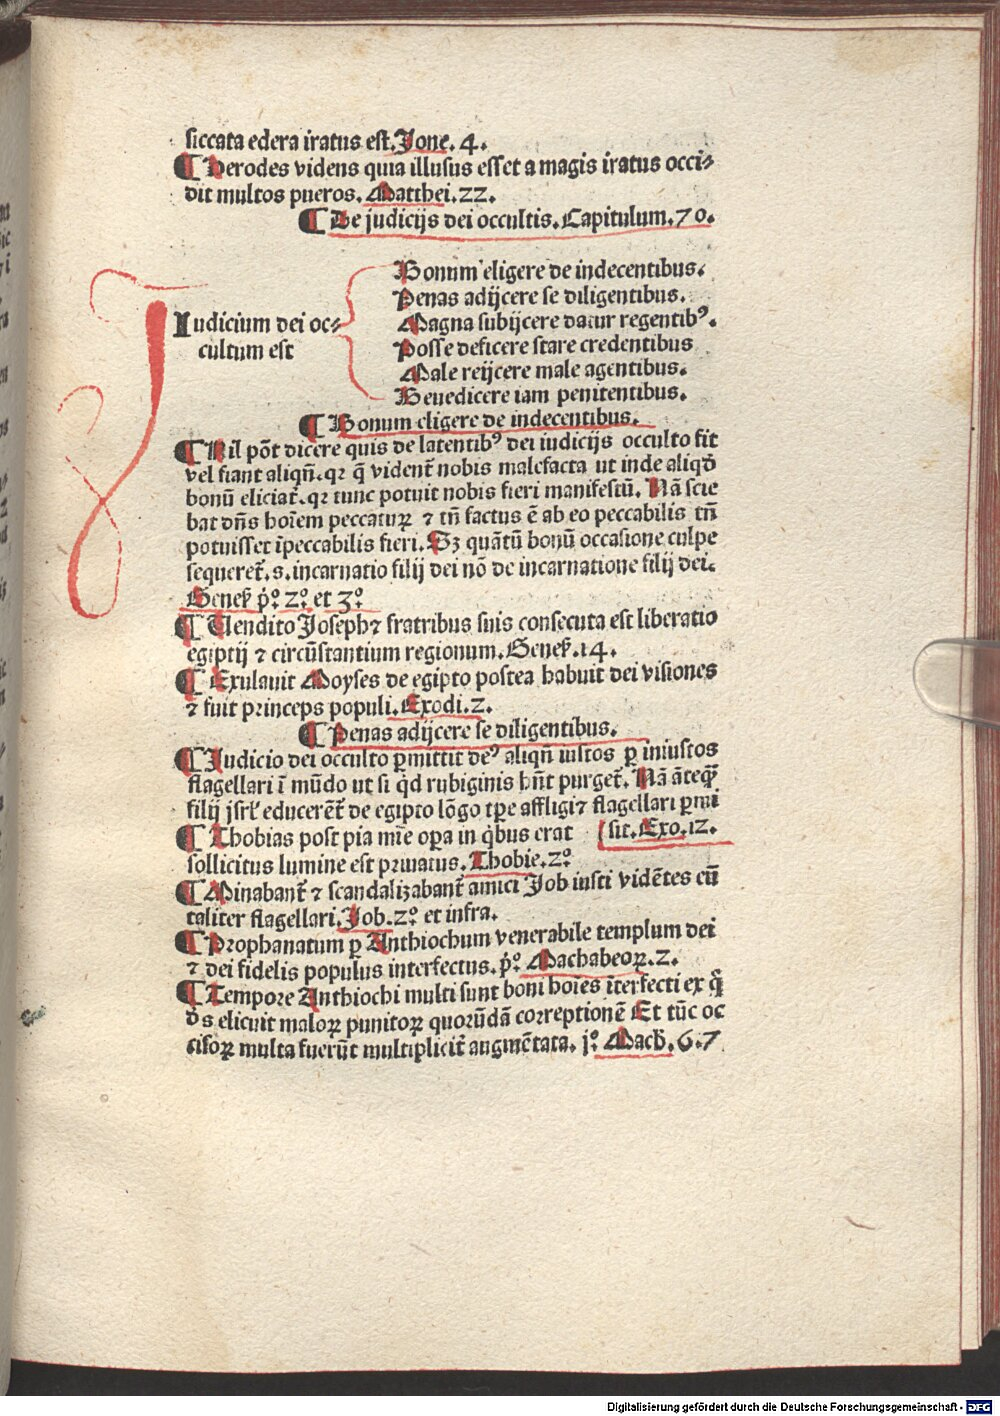 siccata edera iratus est. Jone. 4.
¶ Herodes videns quia illusus esset a magis iratus occi⸗
dit multos pueros. Matthei. 22.
¶ De judicijs dei occultis. Capitulum. 70.
Iudicium dei oc⸗
cultum est
Bonum eligere de indecentibus.
Penas adijcere se diligentibus.
Magna subijcere datur regentibꝰ.
Posse deficere stare credentibus
Male reijcere male agentibus.
Benedicere iam penitentibus.
¶ Bonum eligere de indecentibus.
¶ Nil pōt dicere quis de latentibꝰ dei iudicijs occulto fit
vel fiant aliqñ. qꝛ q̄ vident̄ nobis malefacta ut inde aliqď
bonū eliciat̄. qꝛ tunc potuit nobis fieri manifestū. Nā scie
bat dn̄s hoīem peccaturꝝ ⁊ tn̄ factus ē ab eo peccabilis tn̄
potuisset īpeccabilis fieri. Sꝫ quātū bonū occasione culpe
sequeret̄. s. incarnatio filij dei nō de incarnatione filij dei.
Genes̄ pͦ. 2ͦ. et 3ͦ.
¶ Vendito Joseph ⁊ fratribus suis consecuta est liberatio
egiptij ⁊ circūstantium regionum. Genes̄. 14.
¶ Exulauit Moyses de egipto postea habuit dei visiones
⁊ fuit princeps populi. Exodi. 2.
¶ Penas adijcere se diligentibus.
¶ Judicio dei occulto ꝑmittit deꝰ aliqñ iustos ꝑ iniustos
flagellari ī mūdo ut si qͥd rubiginis hn̄t purget̄. Nā āteqꝫ̄
filij jsrl̄ educerēt̄ de egipto lōgo tꝑe affligi ⁊ flagellari ꝑmi
¶ Thobias post pia mīe oꝑa in qͥbus erat (sit. Exo. 12.
sollicitus lumine est priuatus. Thobie. 2ͦ
¶ Minabant̄ ⁊ scandalizabant̄ amici Job iusti vidētes eū
taliter flagellari. Job. 2ͦ. et infra.
¶ Prophanatum ꝑ Anthiochum venerabile templum dei
⁊ dei fidelis populus interfectus. pͦ. Machabeoꝝ. 2.
¶ Tempore Anthiochi multi sunt boni hoīes īterfecti ex qͣ
ď s elicuit maloꝝ punitoꝝ quorūdā correptionē Et tūc oc
cisoꝝ multa fuerūt multiplicit̄ augmētata. jͦ. Mach̄. 6. 7
Digitalisierung gefördert durch die Deutsche Forschungsgemeinschaft - DFG